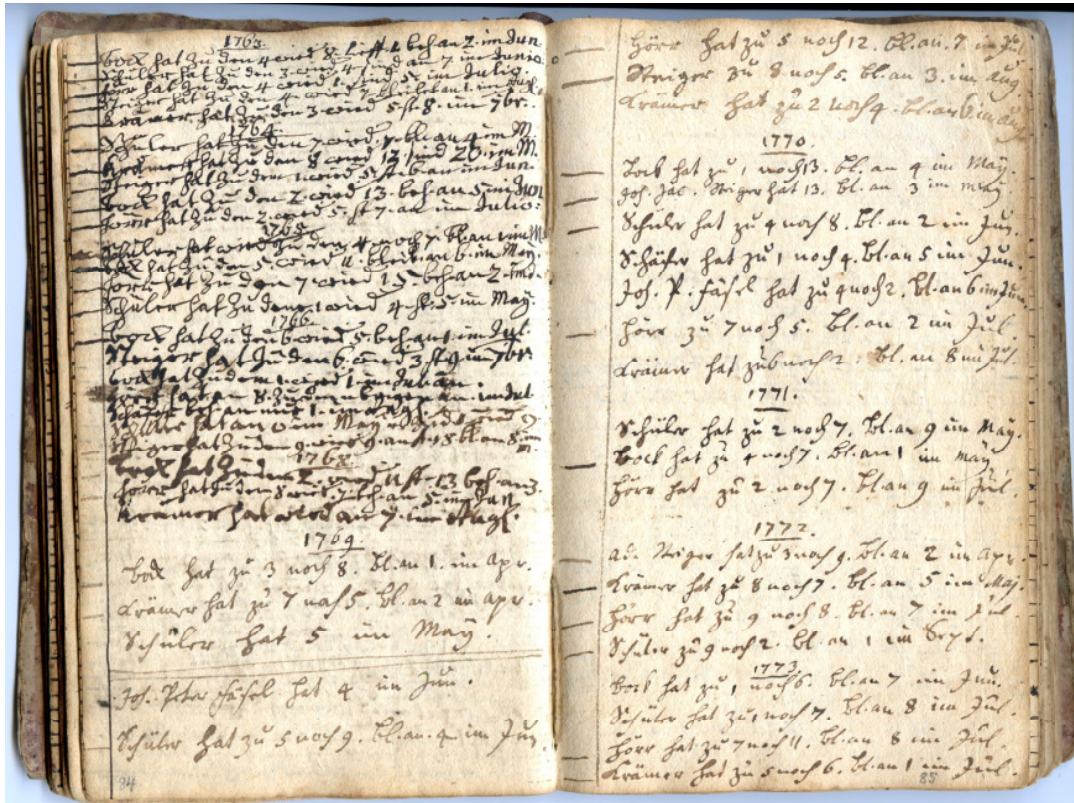 1763.
bock hat zu den 4 wied 8. beh an 2. im Jun
Schüler hat zu den 3 wied 4 sind an 7 im Junio.
hörr hat zu den 4 wied im Julio.
Steiger hat zu den 4 wied 7 bleibet an 1. im
Krämer hat zu den 3 wied 5 st 8. im 7br.
1764.
Schüler hat zu den 7 wied bl. an 4 im M.
Krämer hat zu den 8 wied 12 sind 20 im M.
Steiger hat zu dem 1 wied 5 an im Jun.
bock hat zu den 2 wied 13. beh an 5 im Jun
hörr hat zu den 2 wied 5. st 7. an im Julio:
1765.
Schüler hat wied zu dem 4 noch 7. bl. an 1 im M
bock hat zu den 5. wied 11. bleibt an 6. im May.
hörr hat zu den 7 wied 15. beh an 2 im
Schüler hat zu dem 1 wied 4 st. 5. im May.
1766.
bock hat zu den 6 wied 5. beh an 1. im Jul.
Steiger hat zu den 6. wied 3. st 9 im 7br.
bock hat zu dem 1 wied 1. im
hat an 8. zu den im Jul
beh an nur 1. im Augs.
hat an im May
Steiger hat zu den 9 wied 9. an st 18 bl an 8 im
1768.
bock hat zu den 2. wied 11 st 13 beh an 3.
hörr hat zu den 8 wied 7. beh an 5. im Jun
Krämer hat wied an 7. im Augs.
1769.
bock hat zu 3 noch 8. bl. an 1. im Apr.
Krämer hat zu 7 noch 5. bl. an 2 im Apr.
Schüler hat 5 im May.
Joh. Peter Fäsel hat 4 im Jun.
Schüler hat zu 5 noch 9. bl. an. 4 im Jun.
84
hörr hat zu 5 noch 12. bl. an. 7 im Jul
Steiger zu 8 noch 5. bl. an 3. im Aug
Krämer hat zu 2 noch 4. bl. an 6 im Aug
1770.
bock hat zu 1 noch 13. bl. an 4 im May.
Joh. Jac. Steiger hat 13. bl. an 3 im May
Schüler hat zu 4 noch 8. bl. an 2 im Jun.
Schäfer hat zu 1 noch 4. bl. an 5 im Jun.
Joh. P. Fäsel hat zu 4 noch 2. bl. an 6 im Jun.
hörr zu 7 noch 5. bl. an 2 im Jul
Krämer hat zu 6 noch 2. bl. an 8 im Jul.
1771.
Schüler hat zu 2 noch 7. bl. an 9 im May.
bock hat zu 4 noch 7. bl. an 1 im May
hörr hat zu 2 noch 7. bl. an 9 im Jul.
1772.
Ad. Steiger hat zu 3 noch 9. bl. an 2 im Apr.
Krämer hat zu 8 noch 7. bl. an 5 im Maj.
hörr hat zu 9 noch 8. bl. an 7 im Jul
Schüler zu 9 noch 2. bl. an 1 im Sept.
1773.
bock hat zu 1 noch 6. bl. an 7 im Jun.
Schüler hat zu 1 noch 7. bl. an 8 im Jul.
hörr hat zu 7 noch 11. bl. an 8 im Jul.
Krämer hat zu 5 noch 6. bl. an 1 im Jul.
85